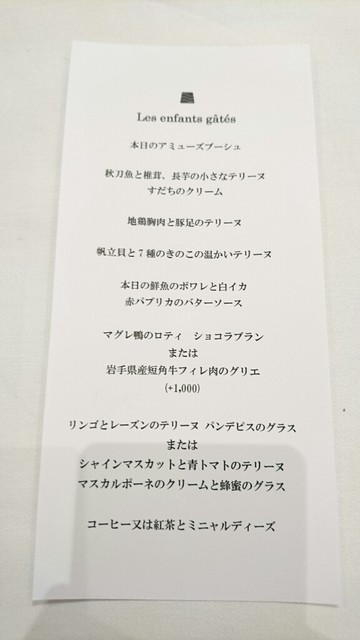 Les enfants gâtés
本日のアミューズブーシュ
秋刀魚と椎茸、長芋の小さなテリーヌ
すだちのクリーム
地鶏胸肉と豚足のテリーヌ
帆立貝と7種のきのこの温かいテリーヌ
本日の鮮魚のポワレと白イカ
赤パプリカのバターソース
マグレ鴨のロティ　ショコラブラン
または
岩手県産短角牛フィレ肉のグリエ
(+1,000)
リンゴとレーズンのテリーヌ パンデピスのグラス
または
シャインマスカットと青トマトのテリーヌ
マスカルポーネのクリームと蜂蜜のグラス
コーヒー又は紅茶とミニャルディーズ